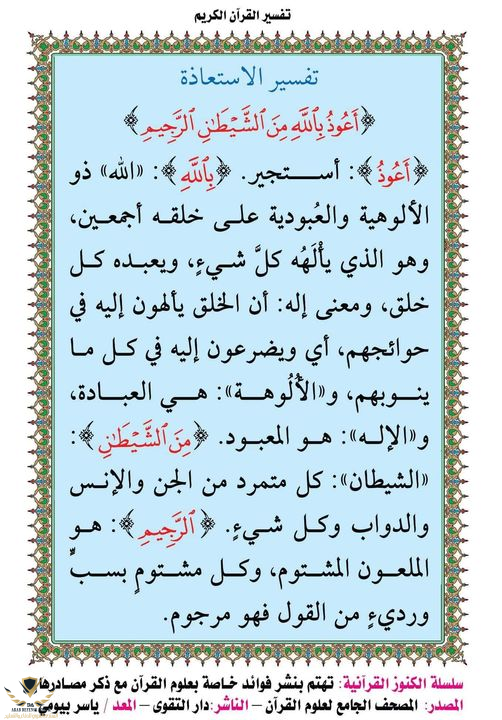 تفسير القرآن الكريم
تفسير الاستعاذة
﴿أَعُوذُ بِٱللَّهِ مِنَ ٱلشَّيْطَٰنِ ٱلرَّجِيمِ﴾
﴿أَعُوذُ﴾: أستجير. ﴿بِٱللَّهِ﴾: «الله» ذو
الألوهية والعُبودية على خلقه أجمعين،
وهو الذي يأْلَهُه كلَّ شيءٍ، ويعبده كل
خلق، ومعنى إله: أن الخلق يألهون إليه في
حوائجهم، أي ويضرعون إليه في كل ما
ينوبهم، و«الأُلُوهة»: هي العبادة،
و«الإله»: هو المعبود. ﴿مِنَ ٱلشَّيْطَٰنِ﴾:
«الشيطان»: كل متمرد من الجن والإنس
والدواب وكل شيءٍ. ﴿ٱلرَّجِيمِ﴾: هو
الملعون المشتوم، وكل مشتومٍ بسبٍّ
ورديءٍ من القول فهو مرجوم.
سلسلة الكنوز القرآنية: تهتم بنشر فوائد خاصة بعلوم القرآن مع ذكر مصادرها
المصدر: المصحف الجامع لعلوم القرآن – الناشر:دار التقوى – المعد / ياسر بيومي
ARAB DEFENSE